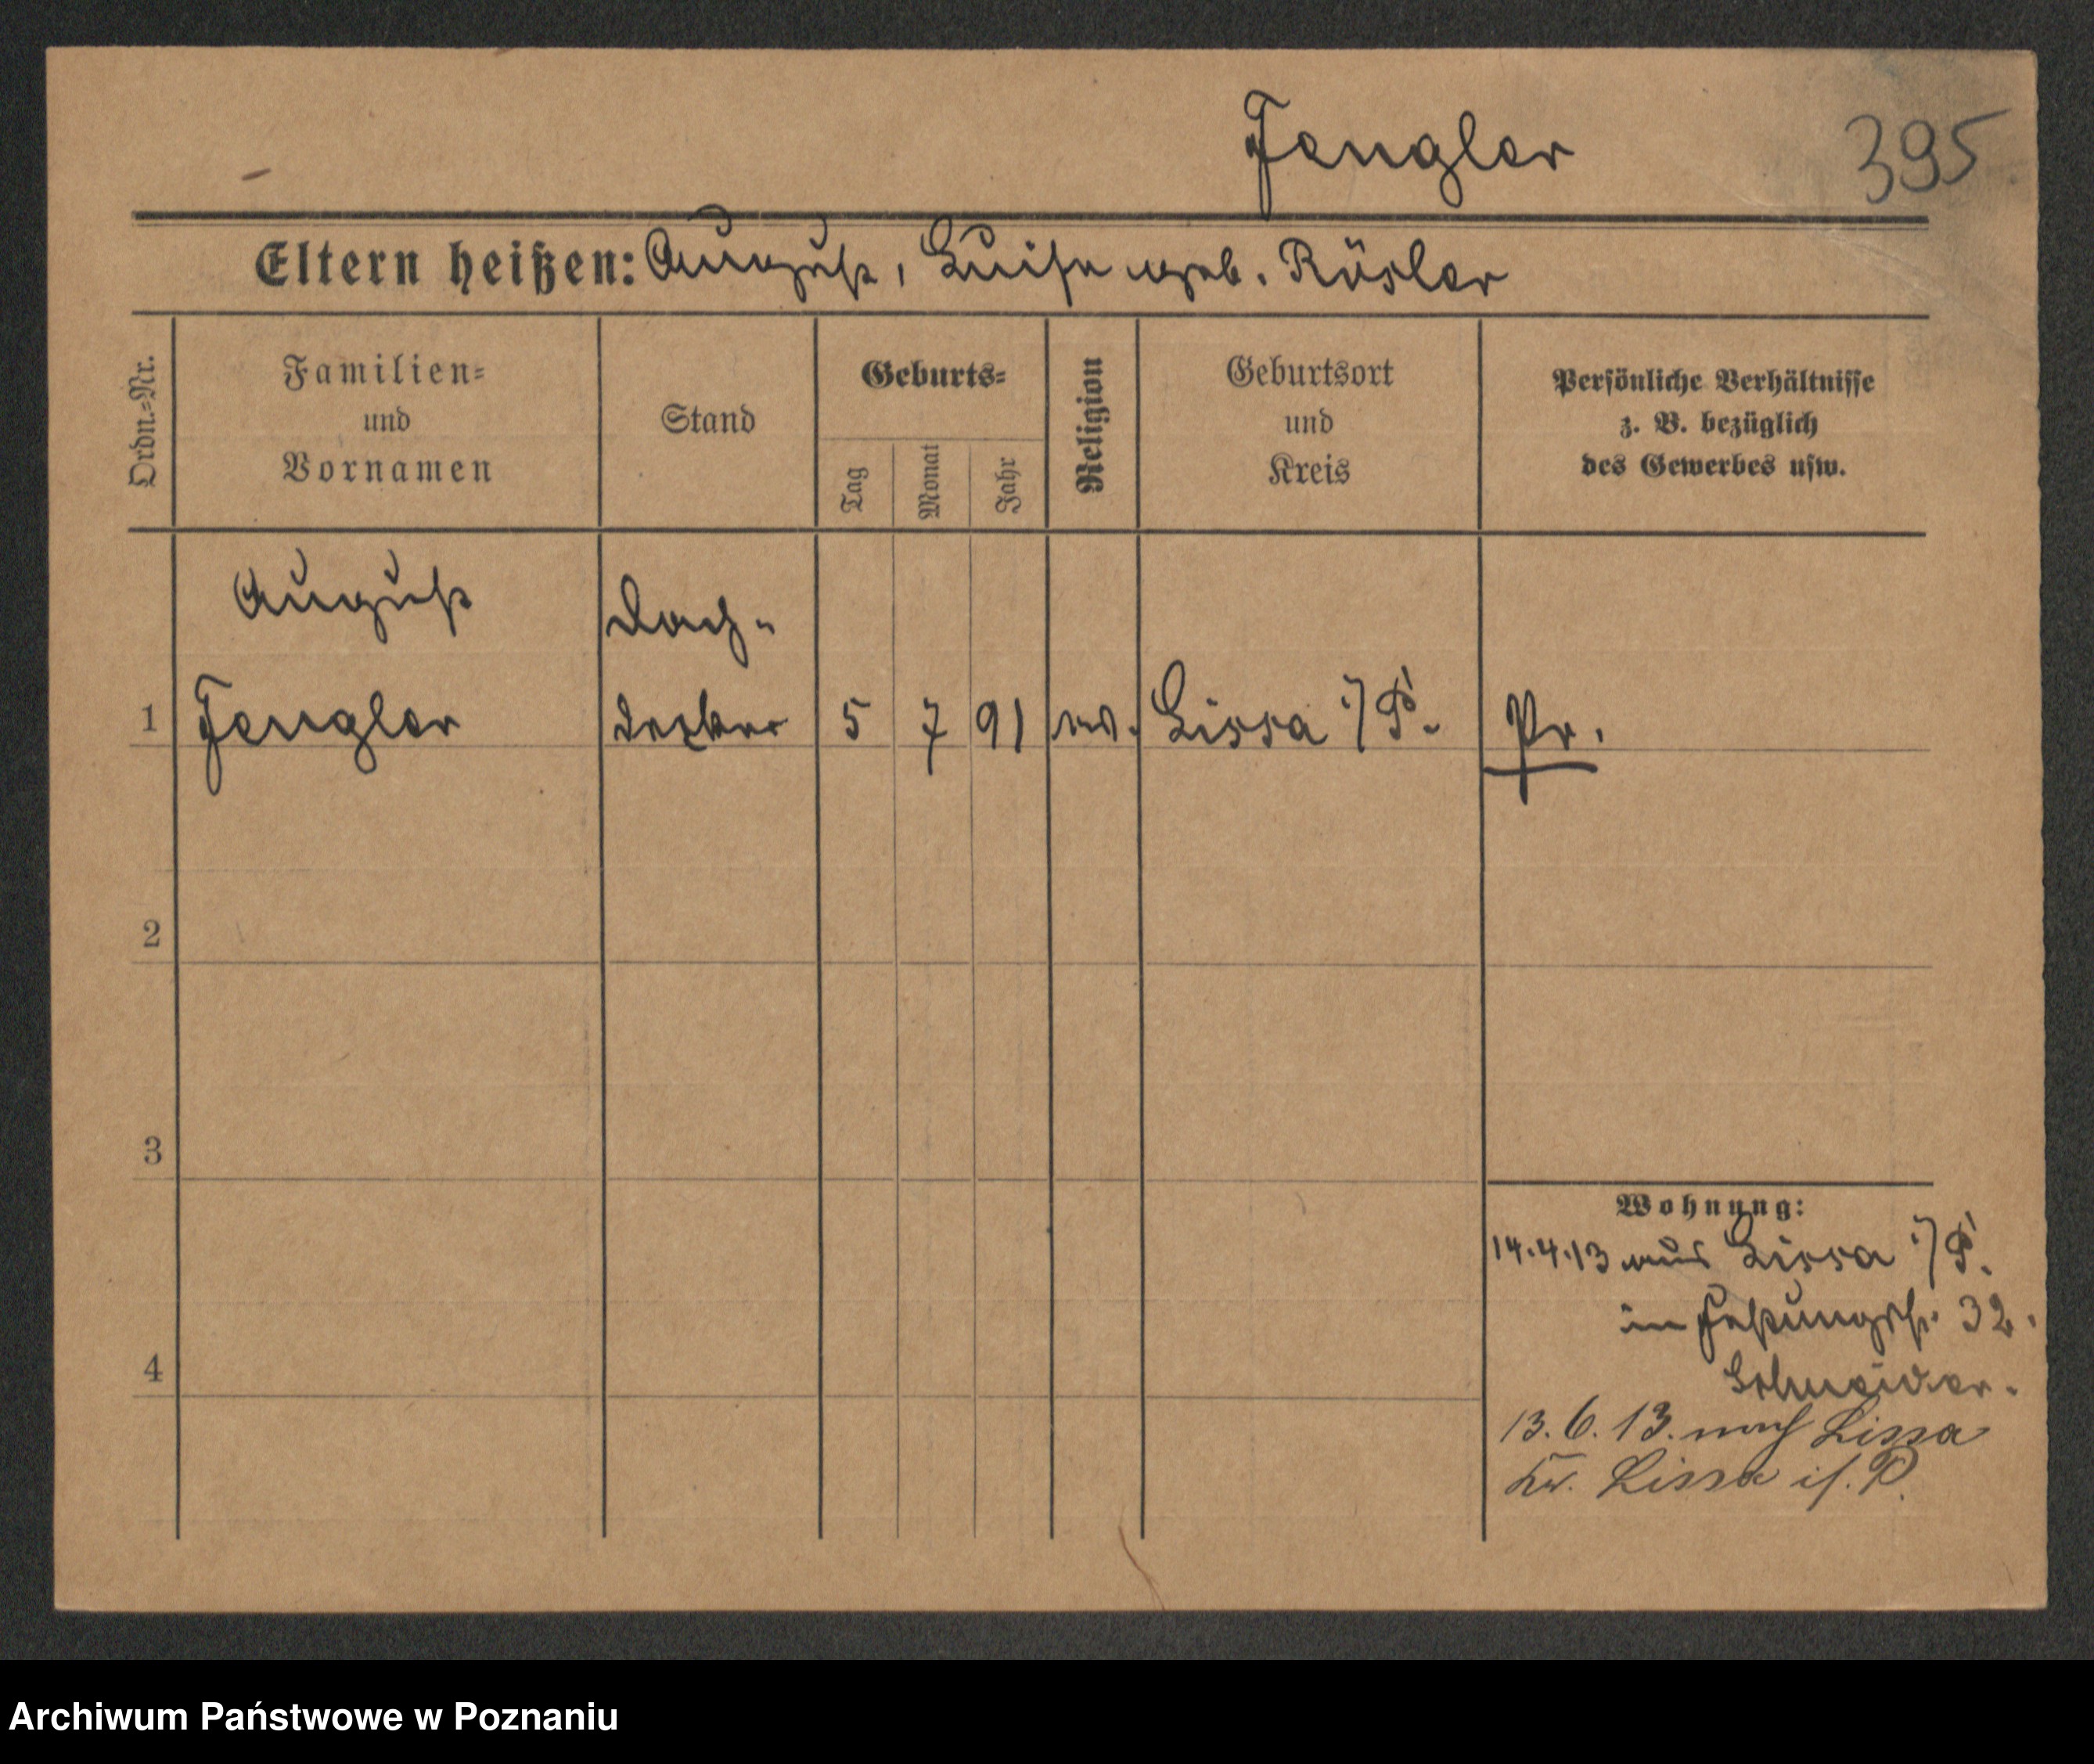 Fengler
395
Eltern heißen: August, Luise geb. Rösler
Ordn.-Nr.
Familien-
und
Vornamen
Stand
Geburts-
Tag
Monat
Jahr
Religion
Geburtsort
und
Kreis
Persönliche Verhältnisse
z. B. bezüglich
des Gewerbes usw.
August
Dach-
1 Fengler decker 5 7 91 ev. Lissa i/P. Pr.
2
3
4
Wohnung:
14.4.13 aus Lissa i/P.
in Festungsstr. 32.
Schneider.
13. 6. 13. nach Lissa
Kr. Lissa i/. P.
Archiwum Państwowe w Poznaniu